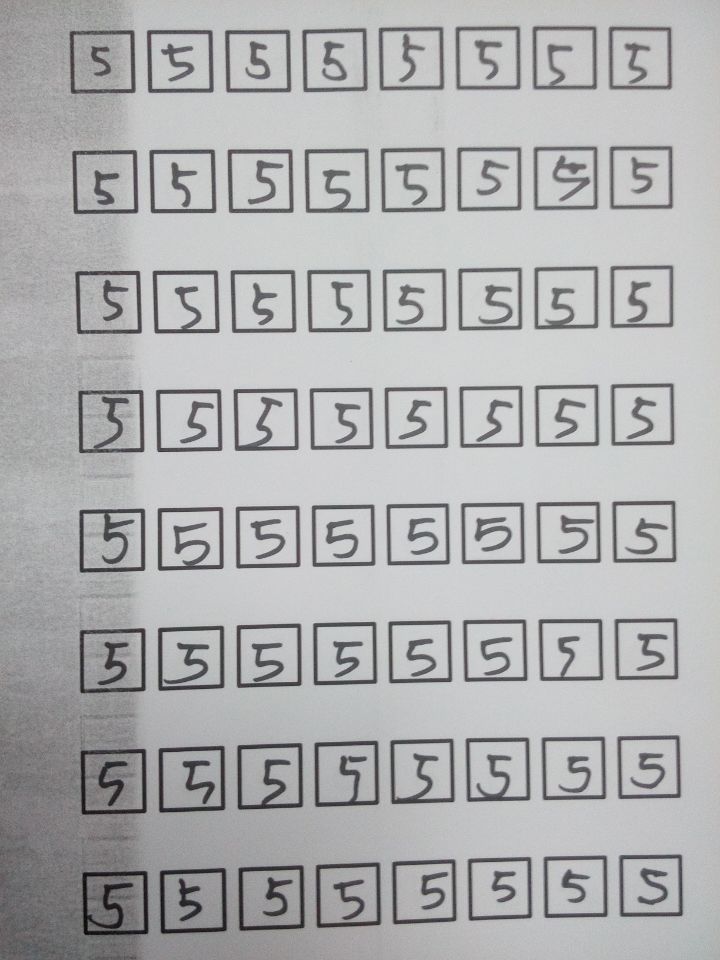 5 5 5 5 5 5 5 5
5 5 5 5 5 5 5 5
5 5 5 5 5 5 5 5
5 5 5 5 5 5 5 5
5 5 5 5 5 5 5 5
5 5 5 5 5 5 5 5
5 5 5 5 5 5 5 5
5 5 5 5 5 5 5 5